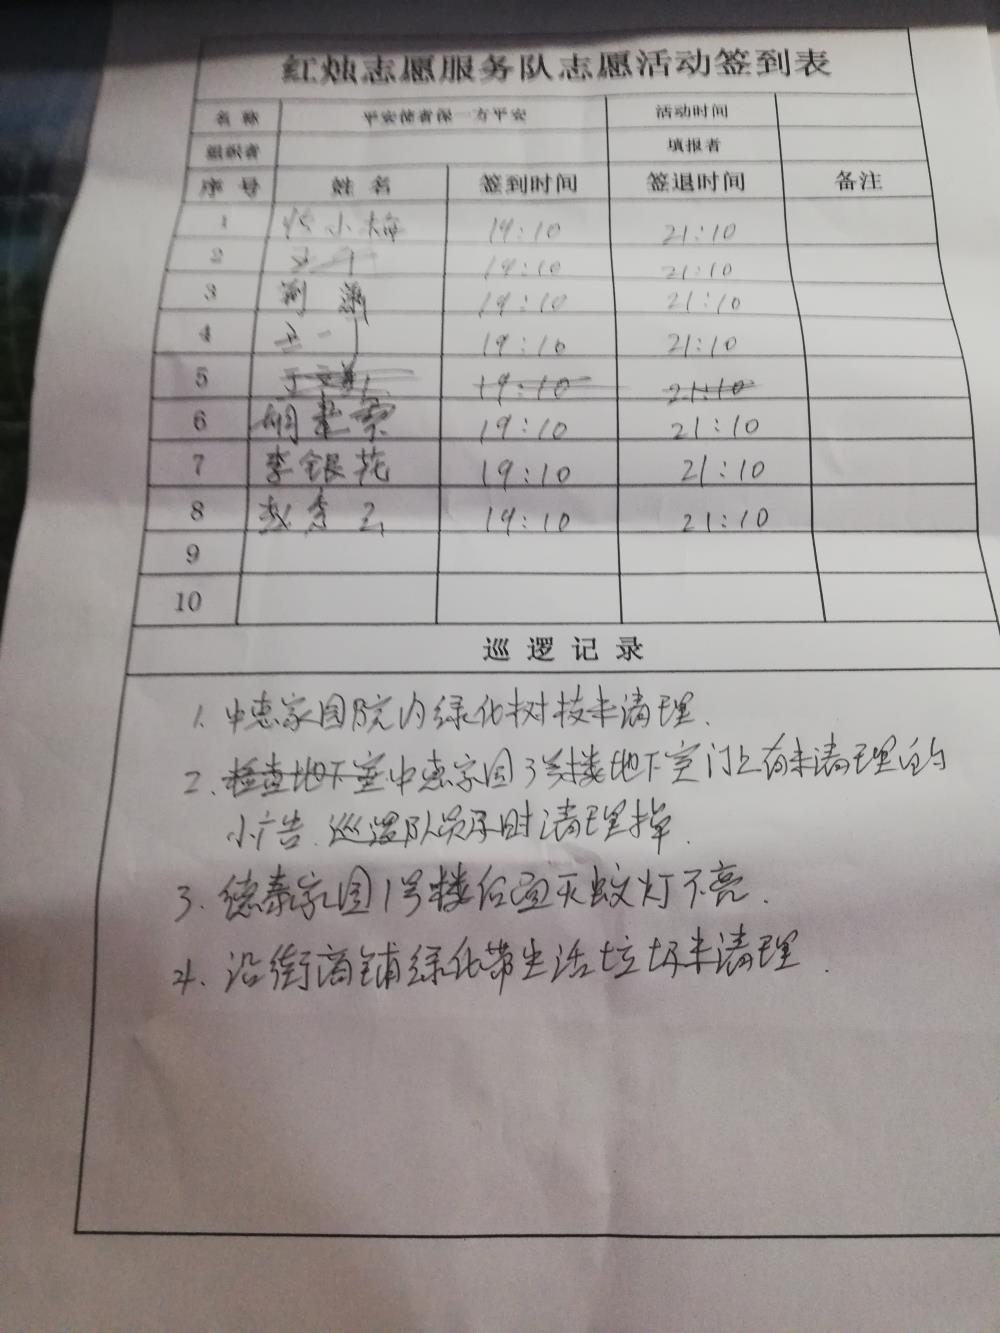 红烛志愿服务队志愿活动签到表
名称 平安使者保一方平安 活动时间
组织者 填报者
序号 姓名 签到时间 签退时间 备注
1 小梅 19:10 21:10
2 19:10 21:10
3 19:10 21:10
4 19:10 21:10
5 19:10 21:10
6 胡 19:10 21:10
7 李银花 19:10 21:10
8 赵秀云 19:10 21:10
9
10
巡逻记录
1. 中惠家园院内绿化树枝未清理.
2. 检查地下室中惠家园3号楼地下室门上有未清理的
小广告.巡逻队员及时清理掉.
3. 德泰家园1号楼后面灭蚊灯不亮.
4. 沿街商铺绿化带生活垃圾未清理.